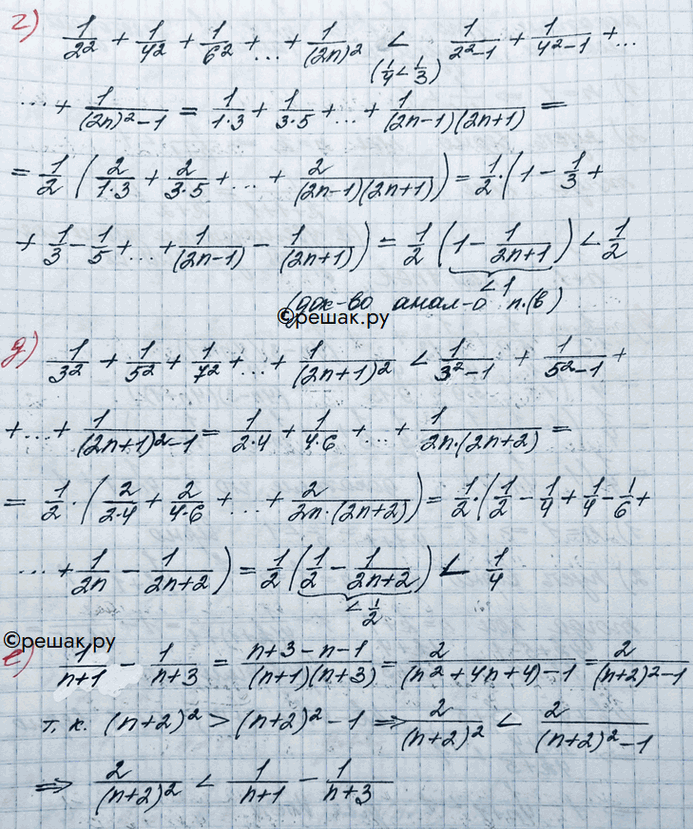 г) 1/2² + 1/4² + 1/6² + ... + 1/(2n)² < 1/(2²-1) + 1/(4²-1) + ...
(1/4 < 1/3)
... + 1/((2n)²-1) = 1/(1·3) + 1/(3·5) + ... + 1/((2n-1)(2n+1)) =
= 1/2 (2/(1·3) + 2/(3·5) + ... + 2/((2n-1)(2n+1))) = 1/2·(1 - 1/3 +
+ 1/3 - 1/5 + ... + 1/(2n-1) - 1/(2n+1)) = 1/2 (1 - 1/(2n+1)) < 1/2
< 1
(док-во анал-о п.(в)
©решак.ру
д) 1/3² + 1/5² + 1/7² + ... + 1/(2n+1)² < 1/(3²-1) + 1/(5²-1) +
+ ... + 1/((2n+1)²-1) = 1/(2·4) + 1/(4·6) + ... + 1/(2n·(2n+2)) =
= 1/2·(2/(2·4) + 2/(4·6) + ... + 2/(2n·(2n+2))) = 1/2·(1/2 - 1/4 + 1/4 - 1/6 +
... + 1/2n - 1/(2n+2)) = 1/2 (1/2 - 1/(2n+2)) < 1/4
< 1/2
©решак.ру
е) 1/(n+1) - 1/(n+3) = (n+3-n-1)/((n+1)(n+3)) = 2/((n²+4n+4)-1) = 2/((n+2)²-1)
т.к. (n+2)² > (n+2)² - 1 ⇒ 2/(n+2)² < 2/((n+2)²-1)
⇒ 2/(n+2)² < 1/(n+1) - 1/(n+3)